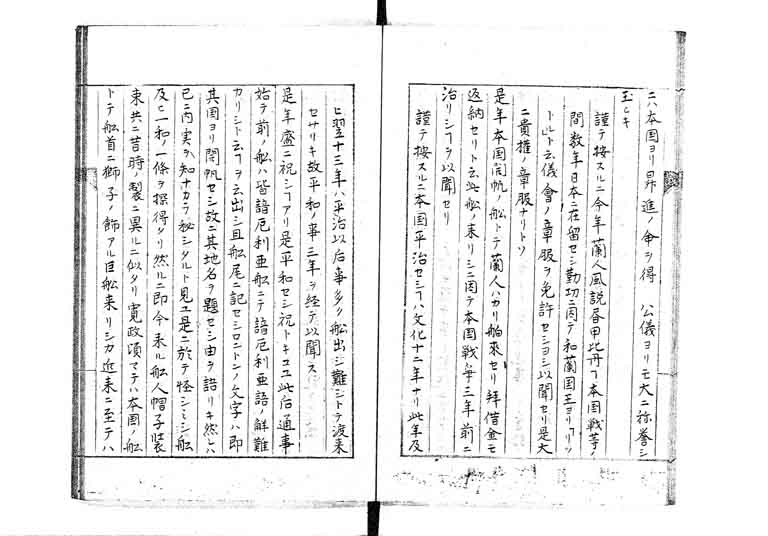 ニハ本国ヨリ昇進ノ命ヲ得 公儀ヨリモ大ニ称誉シ
玉ヒキ
謹テ按スルニ今年蘭人風説昼甲比丹ヿ本国戦芋ノ
間数年日本ニ在留セシ勤功ニ因テ和蘭国王ヨリ
ト云儀會ノ章服ヲ免許セシヨシ以聞セリ是大
ニ貴権ノ章服ナリトソ
是年本国開帆ノ船トテ蘭人ハカリ舶來セリ拜借金モ
返納セリト云此船ノ来リシニ因テ本国戦争三年前ニ
治リシヿヲ以聞セリ
謹テ按スルニ本国平治セシヿハ文化十二年ナリ此年及
ヒ翌十三年ハ平治以后事多ク船出シ難シトテ渡来
セサリキ故平和ノ事三年ヲ経テ以聞ス
是年盛ニ祝シヿアリ是平和セシ祝トキコユ此后通事
始テ前ノ船ハ皆諳厄利亜船ニテ諳厄利亜語ノ解難
カリシト云ヿヲ云出シ且船尾ニ記セシロントンノ文字ハ即
其国ヨリ開帆セシ故ニ其地名ヲ題セシ由ヲ語リキ然レハ
已ニ内実ヲ知ナカラ秘シタルト見ユ是ニ於テ怪シミシ船
及ヒ一和ノ一條ヲ探得タリ然ルニ即今来ル船人帽子装
束共ニ昔時ノ製ニ異ルニ似タリ寛政頃マテハ本国ノ船
トテ船首ニ獅子ノ飾アル巨船来リシカ近来ニ至テハ